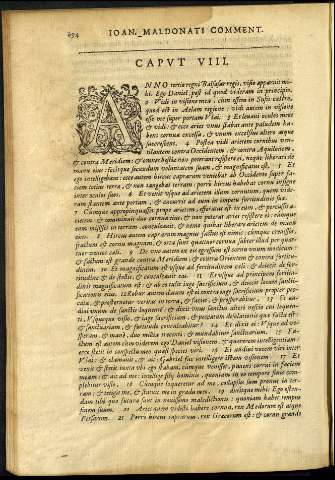 694 IOAN. MALDONATI COMMENT.
CAPVT VIII.
ANNO tertio regni Baltasar regis, visio apparuit mi-
hi. Ego Daniel, post id quod videram in principio,
2 Vidi in visione mea, cum essem in Susis castro,
quod est in Aelam regione: vidi autem in visione
esse me super portam Vlai. 3 Et leuaui oculos meos
& vidi: & ecce aries vnus stabat ante paludem ha-
bens cornua excelsa, & vnum excelsius altero atque
succrescens. 4 Postea vidi arietem cornibus ven-
tilantem contra Occidentem, & contra Aquilonem,
& contra Meridiem: & omnes bestiae non poterant resistere ei, neque liberari de
manu eius: fecitque secundum voluntatem suam, & magnificatus est. 5 Et
ego intelligebam: ecce autem hircus caprarum veniebat ab Occidente super fa-
ciem totius terrae, & non tangebat terram: porro hircus habebat cornu insigne
inter oculos suos. 6 Et venit vsque ad arietem illum cornutum, quem vide-
ram stantem ante portam, & cucurrit ad eum in impetu fortitudinis suae.
7 Cumque appropinquasset prope arietem, efferatus est in eum, & percussit a-
rietem: & comminuit duo cornua eius, & non poterat aries resistere ei: cumque
eum misisset in terram, conculcauit, & nemo quibat liberare arietem de manu
eius. 8 Hircus autem caprarum magnus factus est nimis: cumque creuisset,
fractum est cornu magnum, & orta sunt quatuor cornua subter illud per qua-
tuor ventos coeli. 9 De vno autem ex eis egressum est cornu vnum modicum:
& factum est grande contra Meridiem, & contra Orientem & contra fortitu-
dinem. 10 Et magnificatum est vsque ad fortitudinem coeli: & deiecit de forti-
tudine & de stellis & conculcauit eas. 11 Et vsque ad principem fortitu-
dinis magnificatum est: & ab eo tulit iuge sacrificium, & deiecit locum sancti-
ficationis eius. 12 Robur autem datum est ei contra iuge sacrificium propter pec-
cata, & prosternetur veritas in terra, & faciet, & prosperabitur. 13 Et au-
diui vnum de sanctis loquentem: & dixit vnus sanctus alteri nescio cui loquen-
ti, Vsquequo visio, & iuge sacrificium, & peccatum desolationis quae facta est:
& sanctuarium, & fortitudo conculcabitur? 14 Et dixit ei: Vsque ad ve-
speram, & mane, duo millia trecenti: & mundabitur sanctuarium. 15 Fa-
ctum est autem cum viderem ego Daniel visionem, & quaererem intelligentiam:
ecce stetit in conspectu meo quasi species viri. 16 Et audiui vocem viri inter
Vlai: & clamauit, & ait: Gabriel fac intelligere istum visionem. 17 Et
venit & stetit iuxta vbi ego stabam, cumque venisset, pauens corrui in faciem
meam: & ait ad me: intellige fili hominis, quoniam in tempore finis com-
plebitur visio. 18 Cumque loqueretur ad me, collapsus sum pronus in ter-
ram: & tetigit me, & statuit me in gradu meo. 19 dixitque mihi: Ego osten-
dam tibi quae futura sunt in nouissimo maledictionis: quoniam habet tempus
finem suum. 20 Aries quem vidisti habere cornua, rex Medorum est atque
Persarum. 21 Porro hircus caprarum, rex Graecorum est: & cornu grande